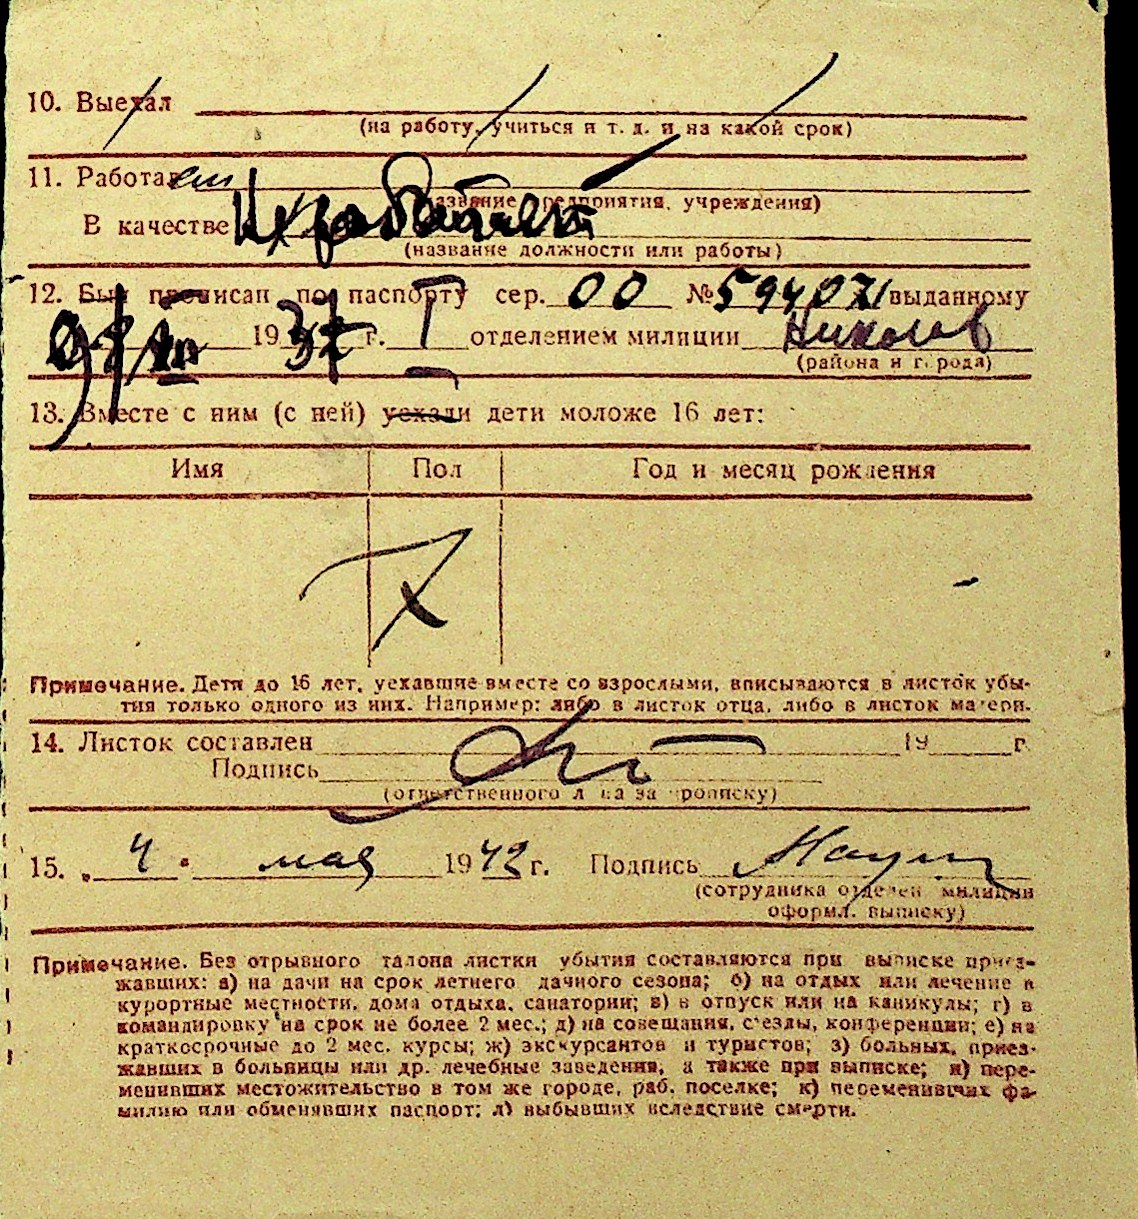 10. Выехал
(на работу, учиться и т. д. и на какой срок)
11. Работал
(название предприятия, учреждения)
В качестве
(название должности или работы)
12. Был прописан по паспорту сер. 00 № 594071 выданному
9/VIII 1937 г. I отделением милиции Николаев
(района и города)
13. Вместе с ним (с ней) уехали дети моложе 16 лет:
Имя Пол Год и месяц рождения
Примечание. Дети до 16 лет, уехавшие вместе со взрослыми, вписываются в листок убы-
тия только одного из них. Например: либо в листок отца, либо в листок матери.
14. Листок составлен 19 г.
Подпись
(ответственного лица за прописку)
15. „ 4 " мая 1942 г. Подпись
(сотрудника отделен. милиции
оформл. выписку)
Примечание. Без отрывного талона листки убытия составляются при выписке приез-
жавших: а) на дачи на срок летнего дачного сезона; б) на отдых или лечение в
курортные местности, дома отдыха, санатории; в) в отпуск или на каникулы; г) в
командировку на срок не более 2 мес.; д) на совещания, съезды, конференции; е) на
краткосрочные до 2 мес. курсы; ж) экскурсантов и туристов; з) больных, приез-
жавших в больницы или др. лечебные заведения, а также при выписке; и) пере-
менивших местожительство в том же городе, раб. поселке; к) переменивших фа-
милию или обменявших паспорт; л) выбывших вследствие смерти.